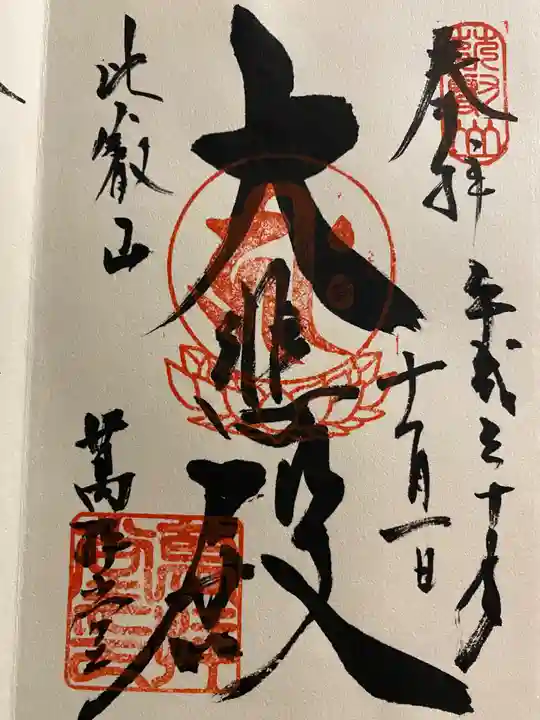 奉拝
平成三十年
十月一日
大悲殿
比叡山
萬拝堂